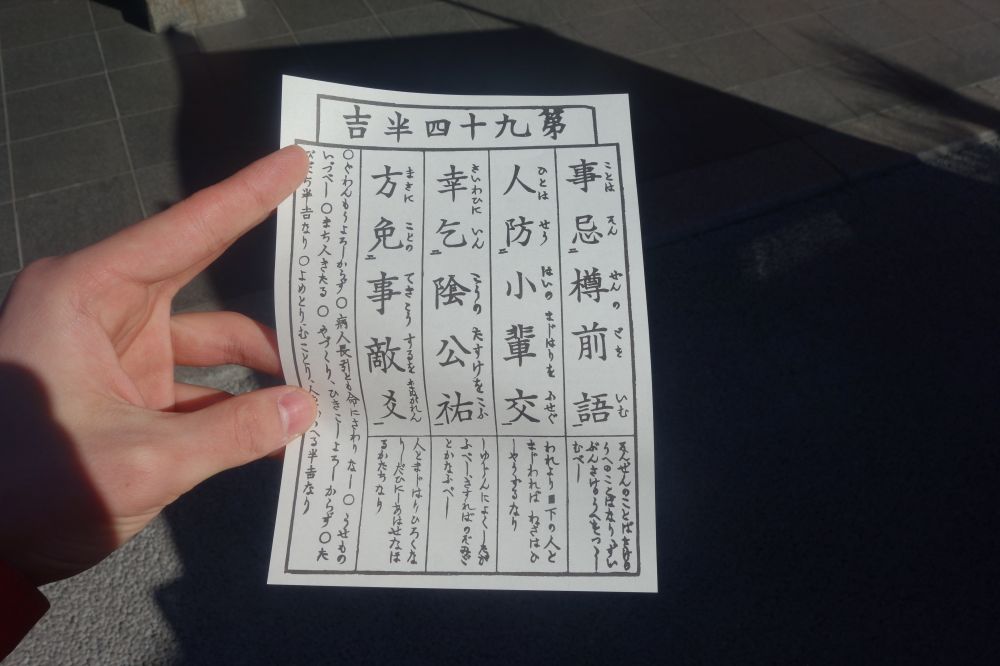 第九十四半吉
事忌樽前語
ことは そん ぜんの ごを いむ
そんぜんのことばとは酒の
うへのことばなりずい
ぶんさけのうへをつゝし
むべし
人防小輩交
ひとは せう はいの まじはりを ふせぐ
われより目下の人と
まじわればわざはひ
とやうするなり
幸乞陰公祐
さいわひに いん こうの たすけを こふ
しゆじんによくしたが
ふべしさすればのぞみご
とかなふべし
方免事敵爻
まさに ことの てきこう するを まぬがれん
人とまじはりひろくな
りしだひにしあはせなほ
るかたちなり
○ぐわんもうよろしからず○病人長引とも命にさわりなし○うせもの
いづべし○まち人きたる○やづくり、ひきこしよろしからず○た
びだち半吉なり○よめとり、むことり、人かゝへる半吉なり